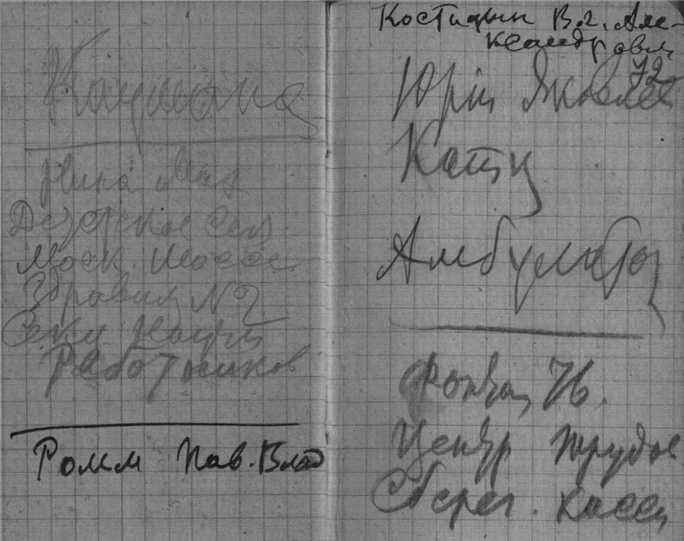 Кауфмана
Нина Мих
Детское Село
Моск. шоссе
Здравица № 2
Секц Научн
Работников
Ромм Пав. Влад
Костицын В.а. Але-
ксандрович
72
Юрій Яковлев
Катц
Амбулатор
Фонтан, 76.
Центр трудов
Сберег. касса